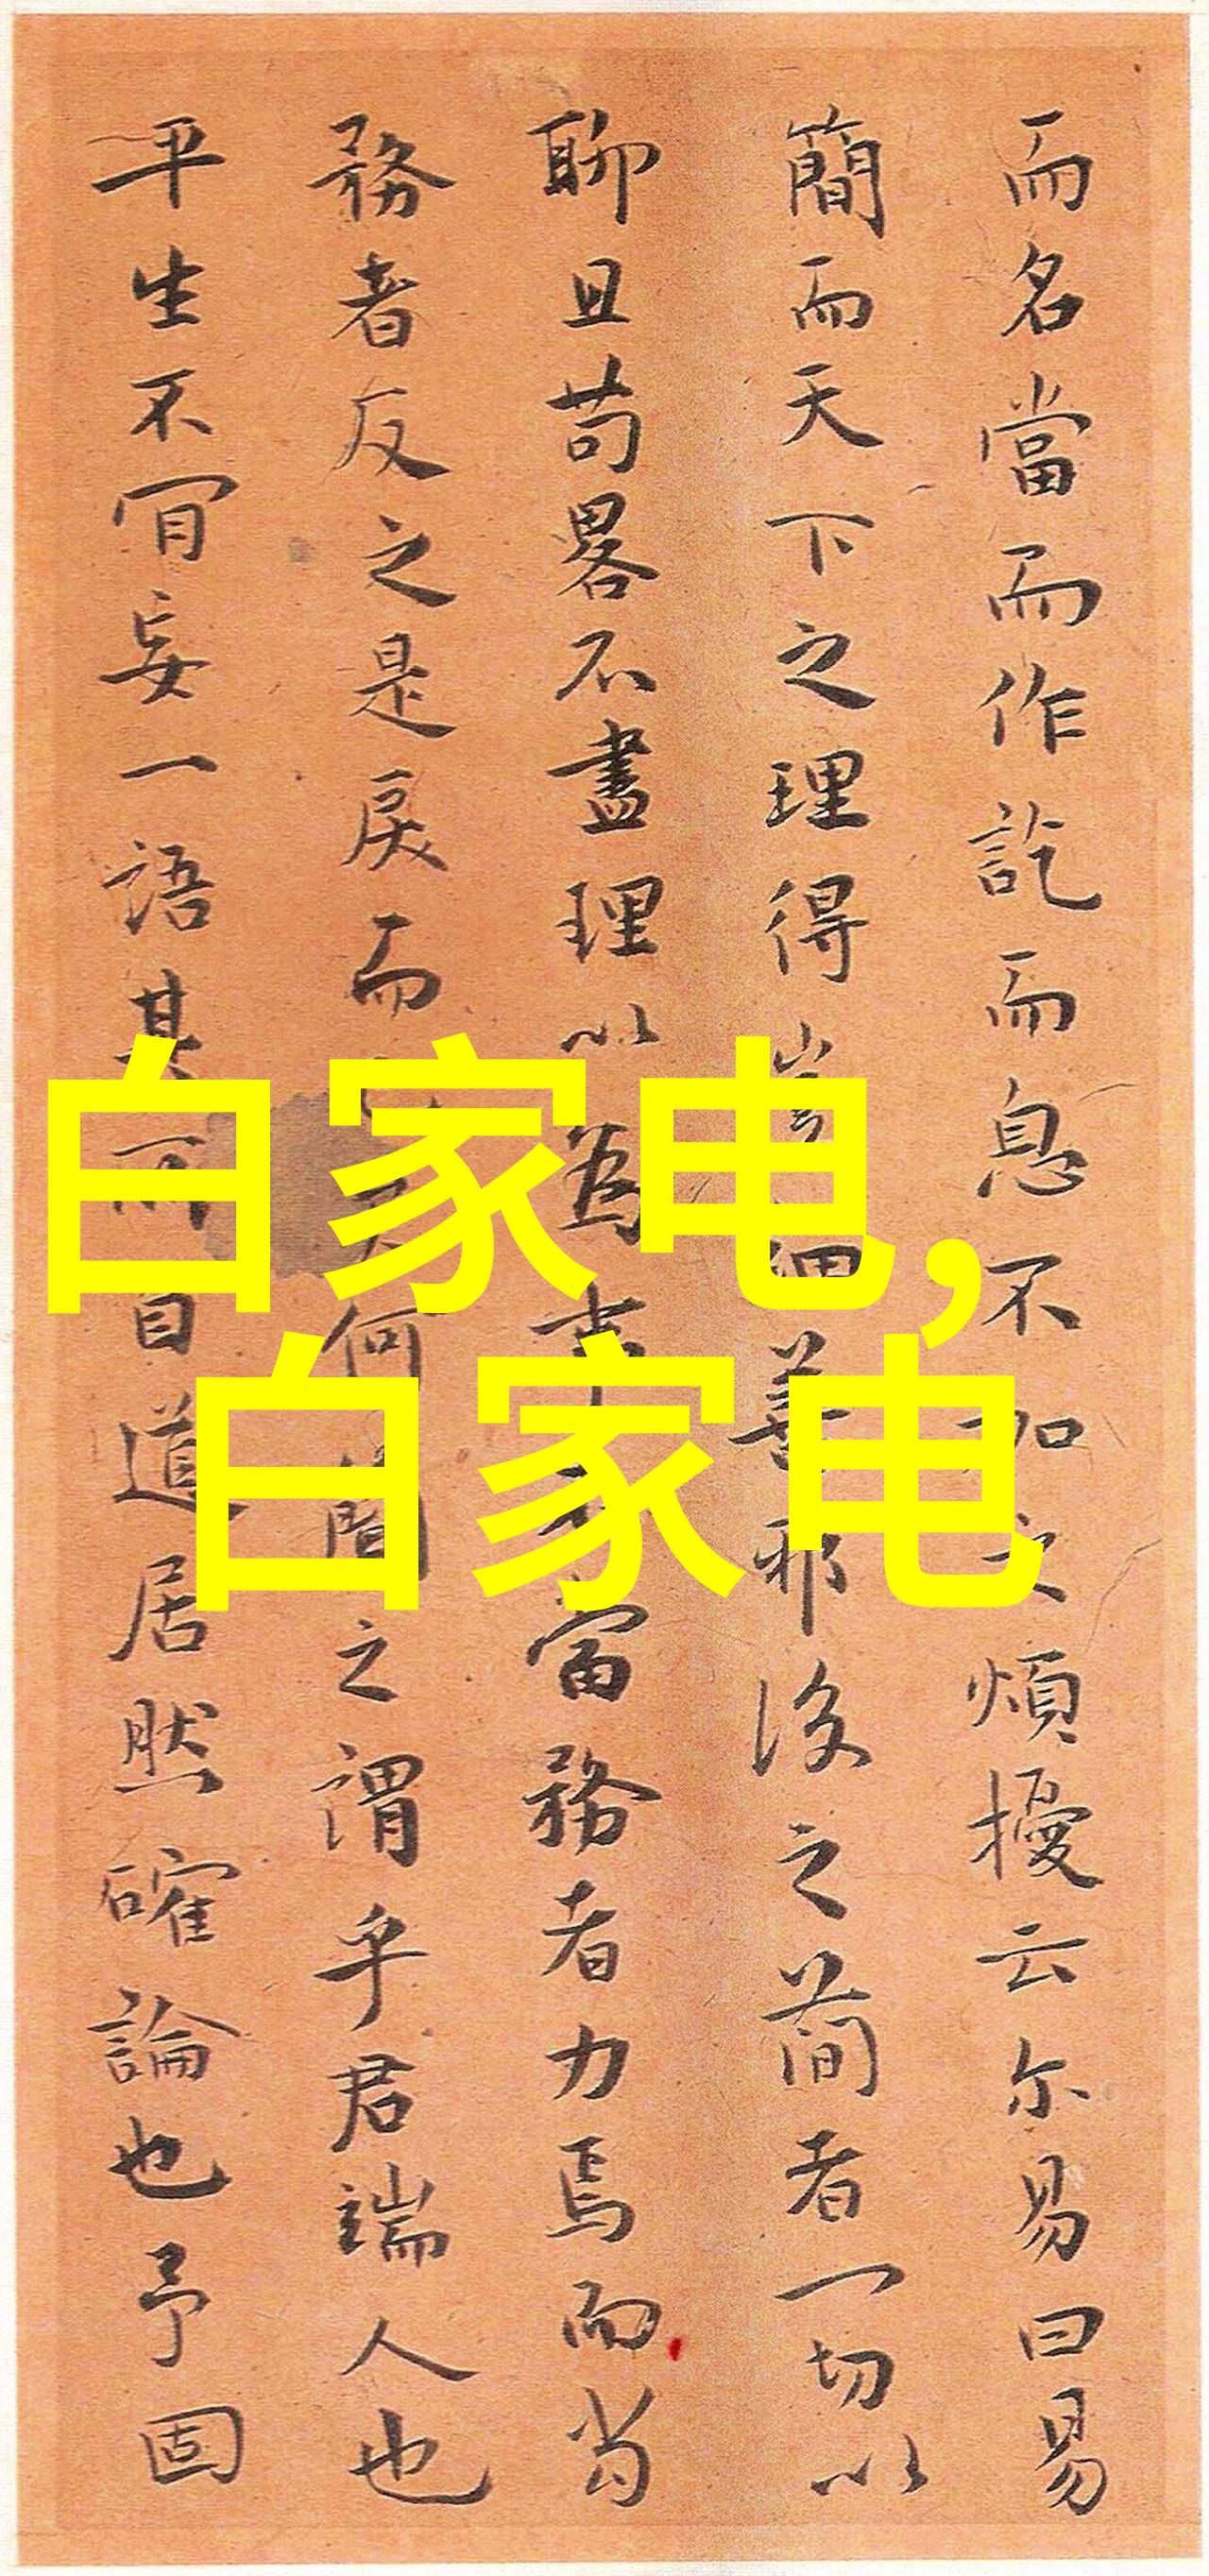 而名當而作訖而息不加之煩擾云尔易曰易
簡而天下之理得豈細善邪後之簡者一切以
聊且苟畧不盡理以為事不當務者力焉而當
務者反之是戾而何簡之謂乎君端人也
平生不肎妄一語其而自道居然確論也予固
白家电,
白家电